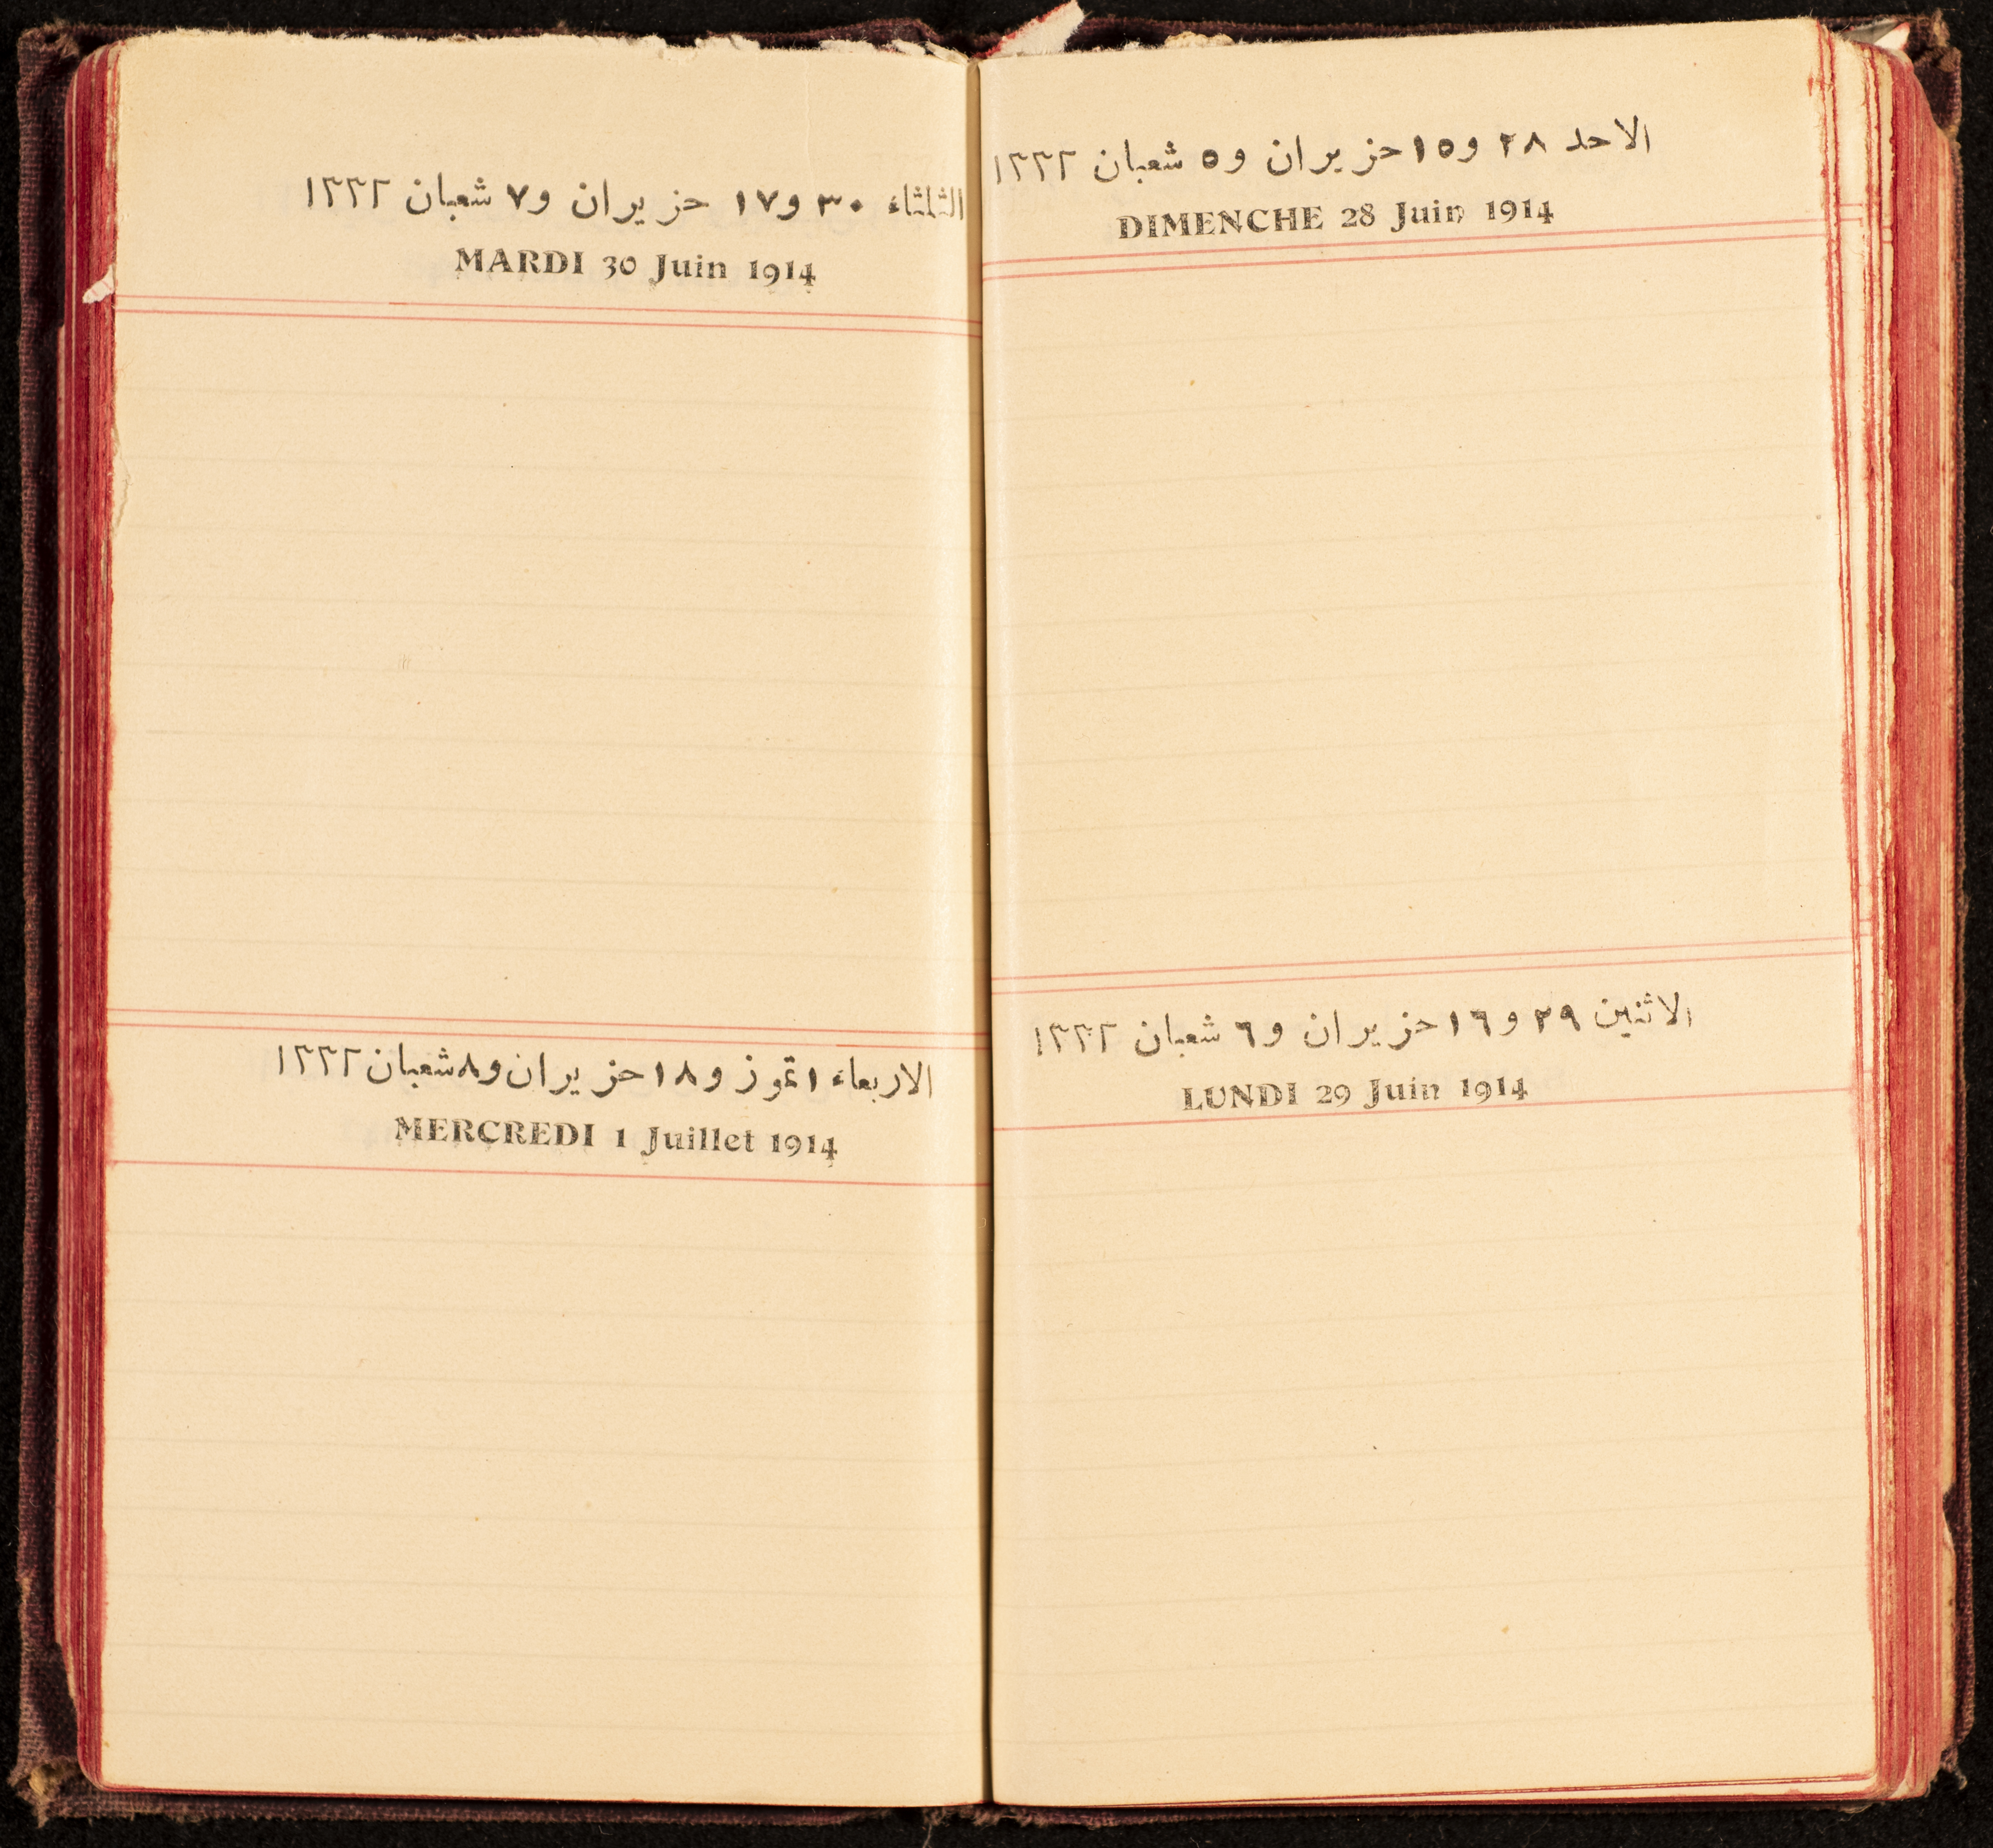 الاحد ٢٨ و١٥ حزيران و٥ شعبان ١٣٣٢
DIMENCHE 28 Juin 1914
الاثنين ٢٩ و١٦ حزيران و٦ شعبان ١٣٣٢
LUNDI 29 Juin 1914
الثلثاء ٣٠ و١٧ حزيران و٧ شعبان ١٣٣٢
MARDI 30 Juin 1914
الاربعاء ١ تموز و١٨ حزيران و٨ شعبان ١٣٣٢
MERCREDI 1 Juillet 1914